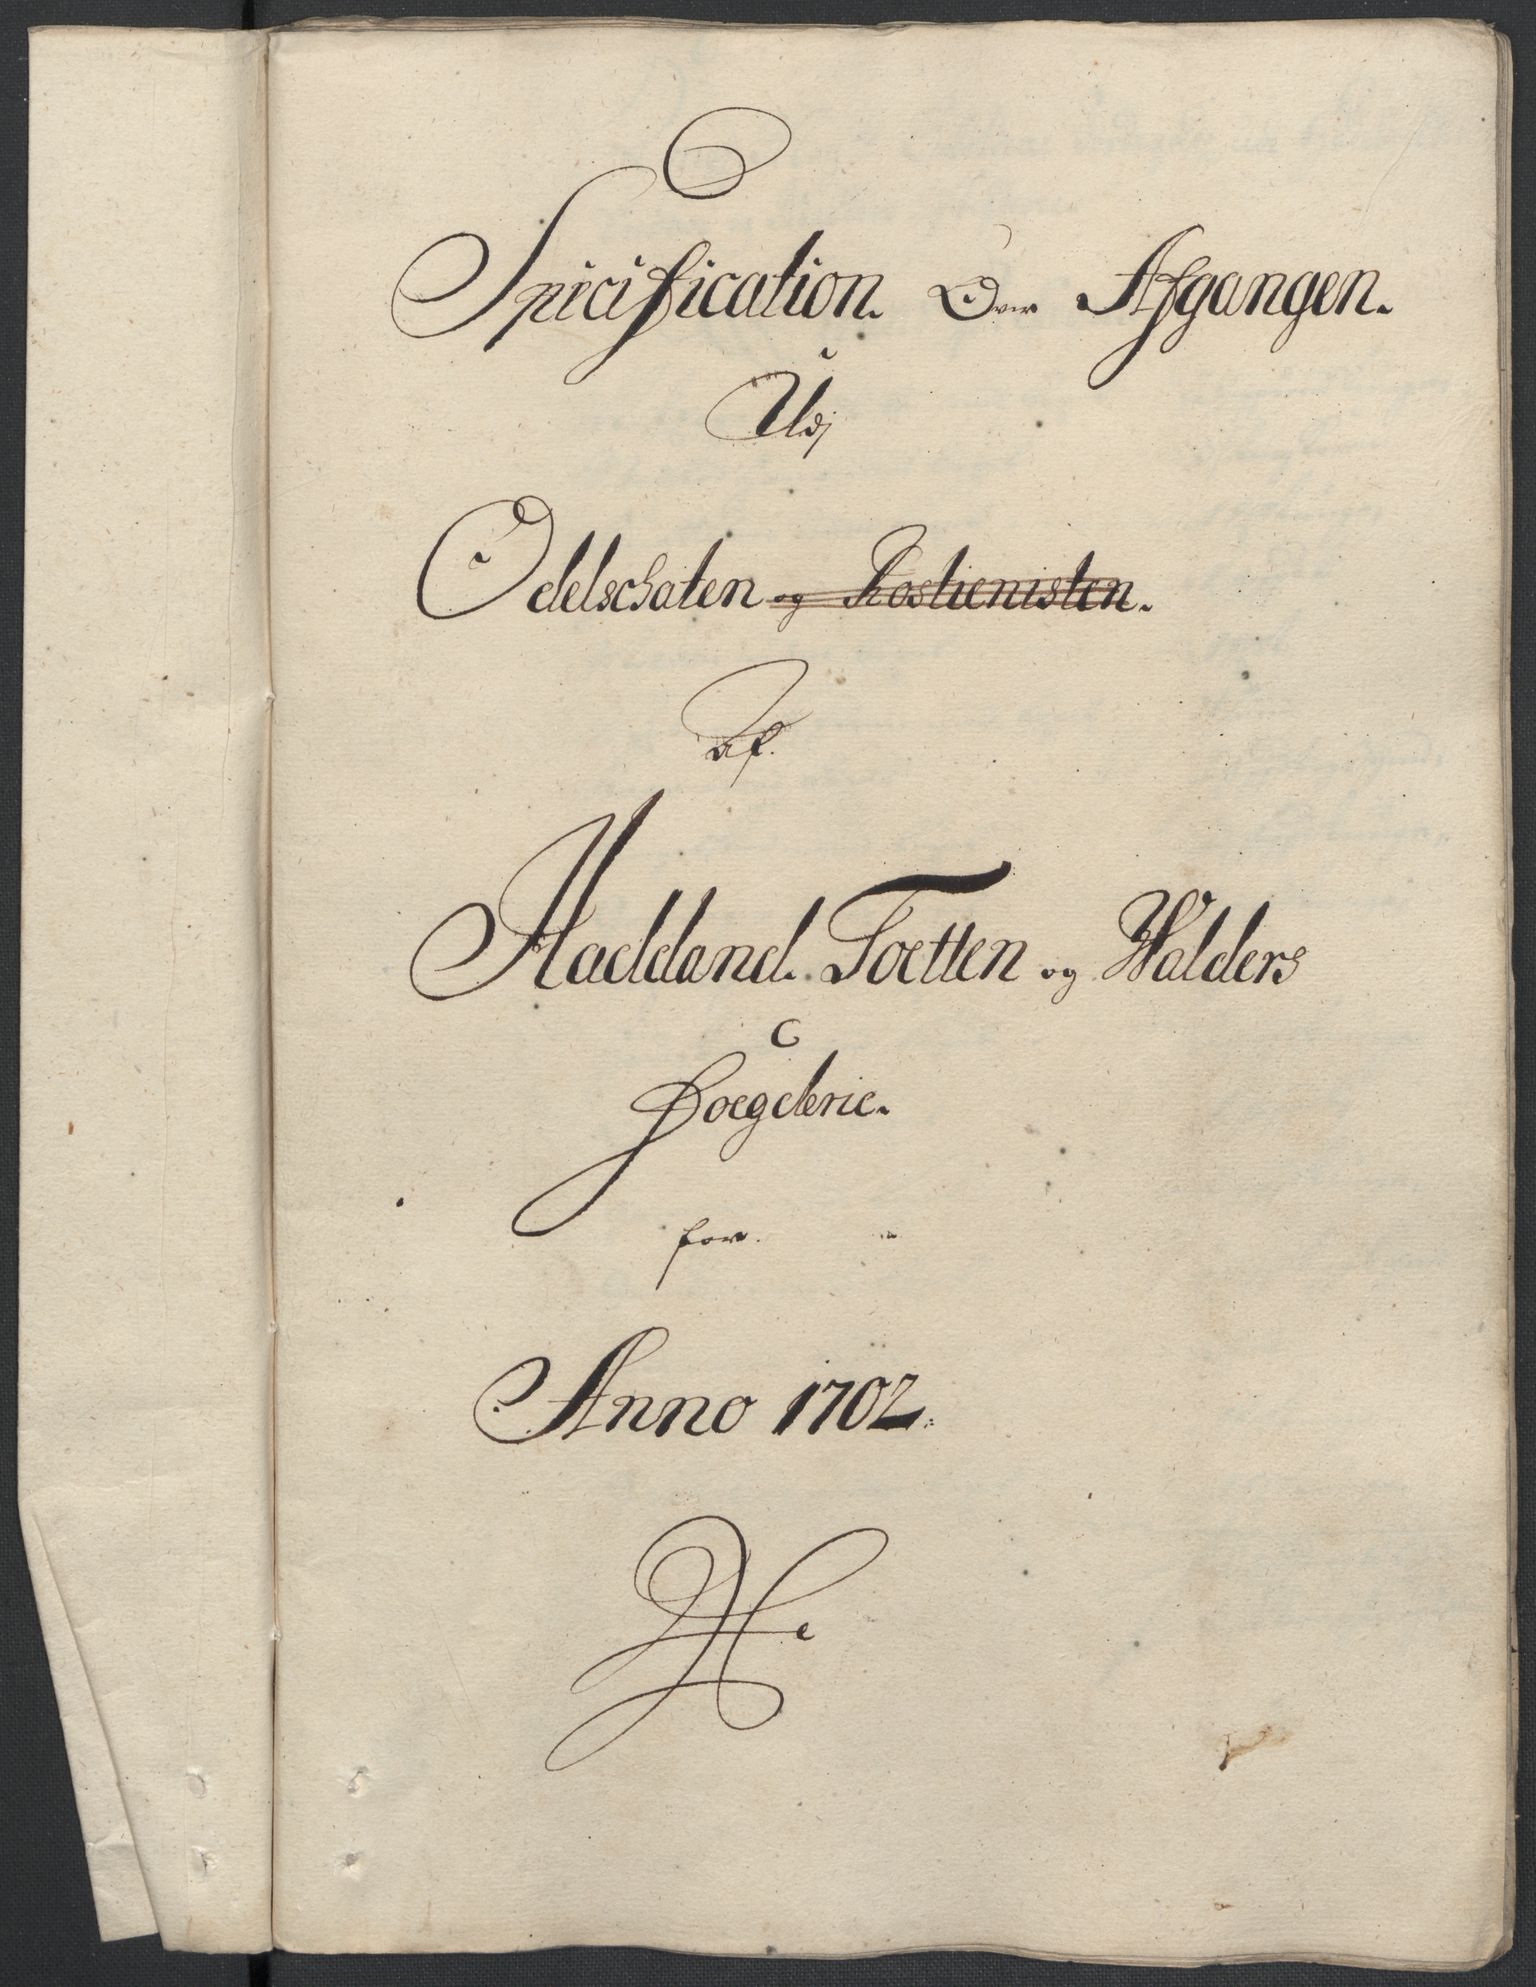 Specification. Over Afgangen.
Udj
Odelschaten og Rostienisten.
Af.
Hadeland. Toetten og Walders
Foegderie.
for.
Anno 1702.